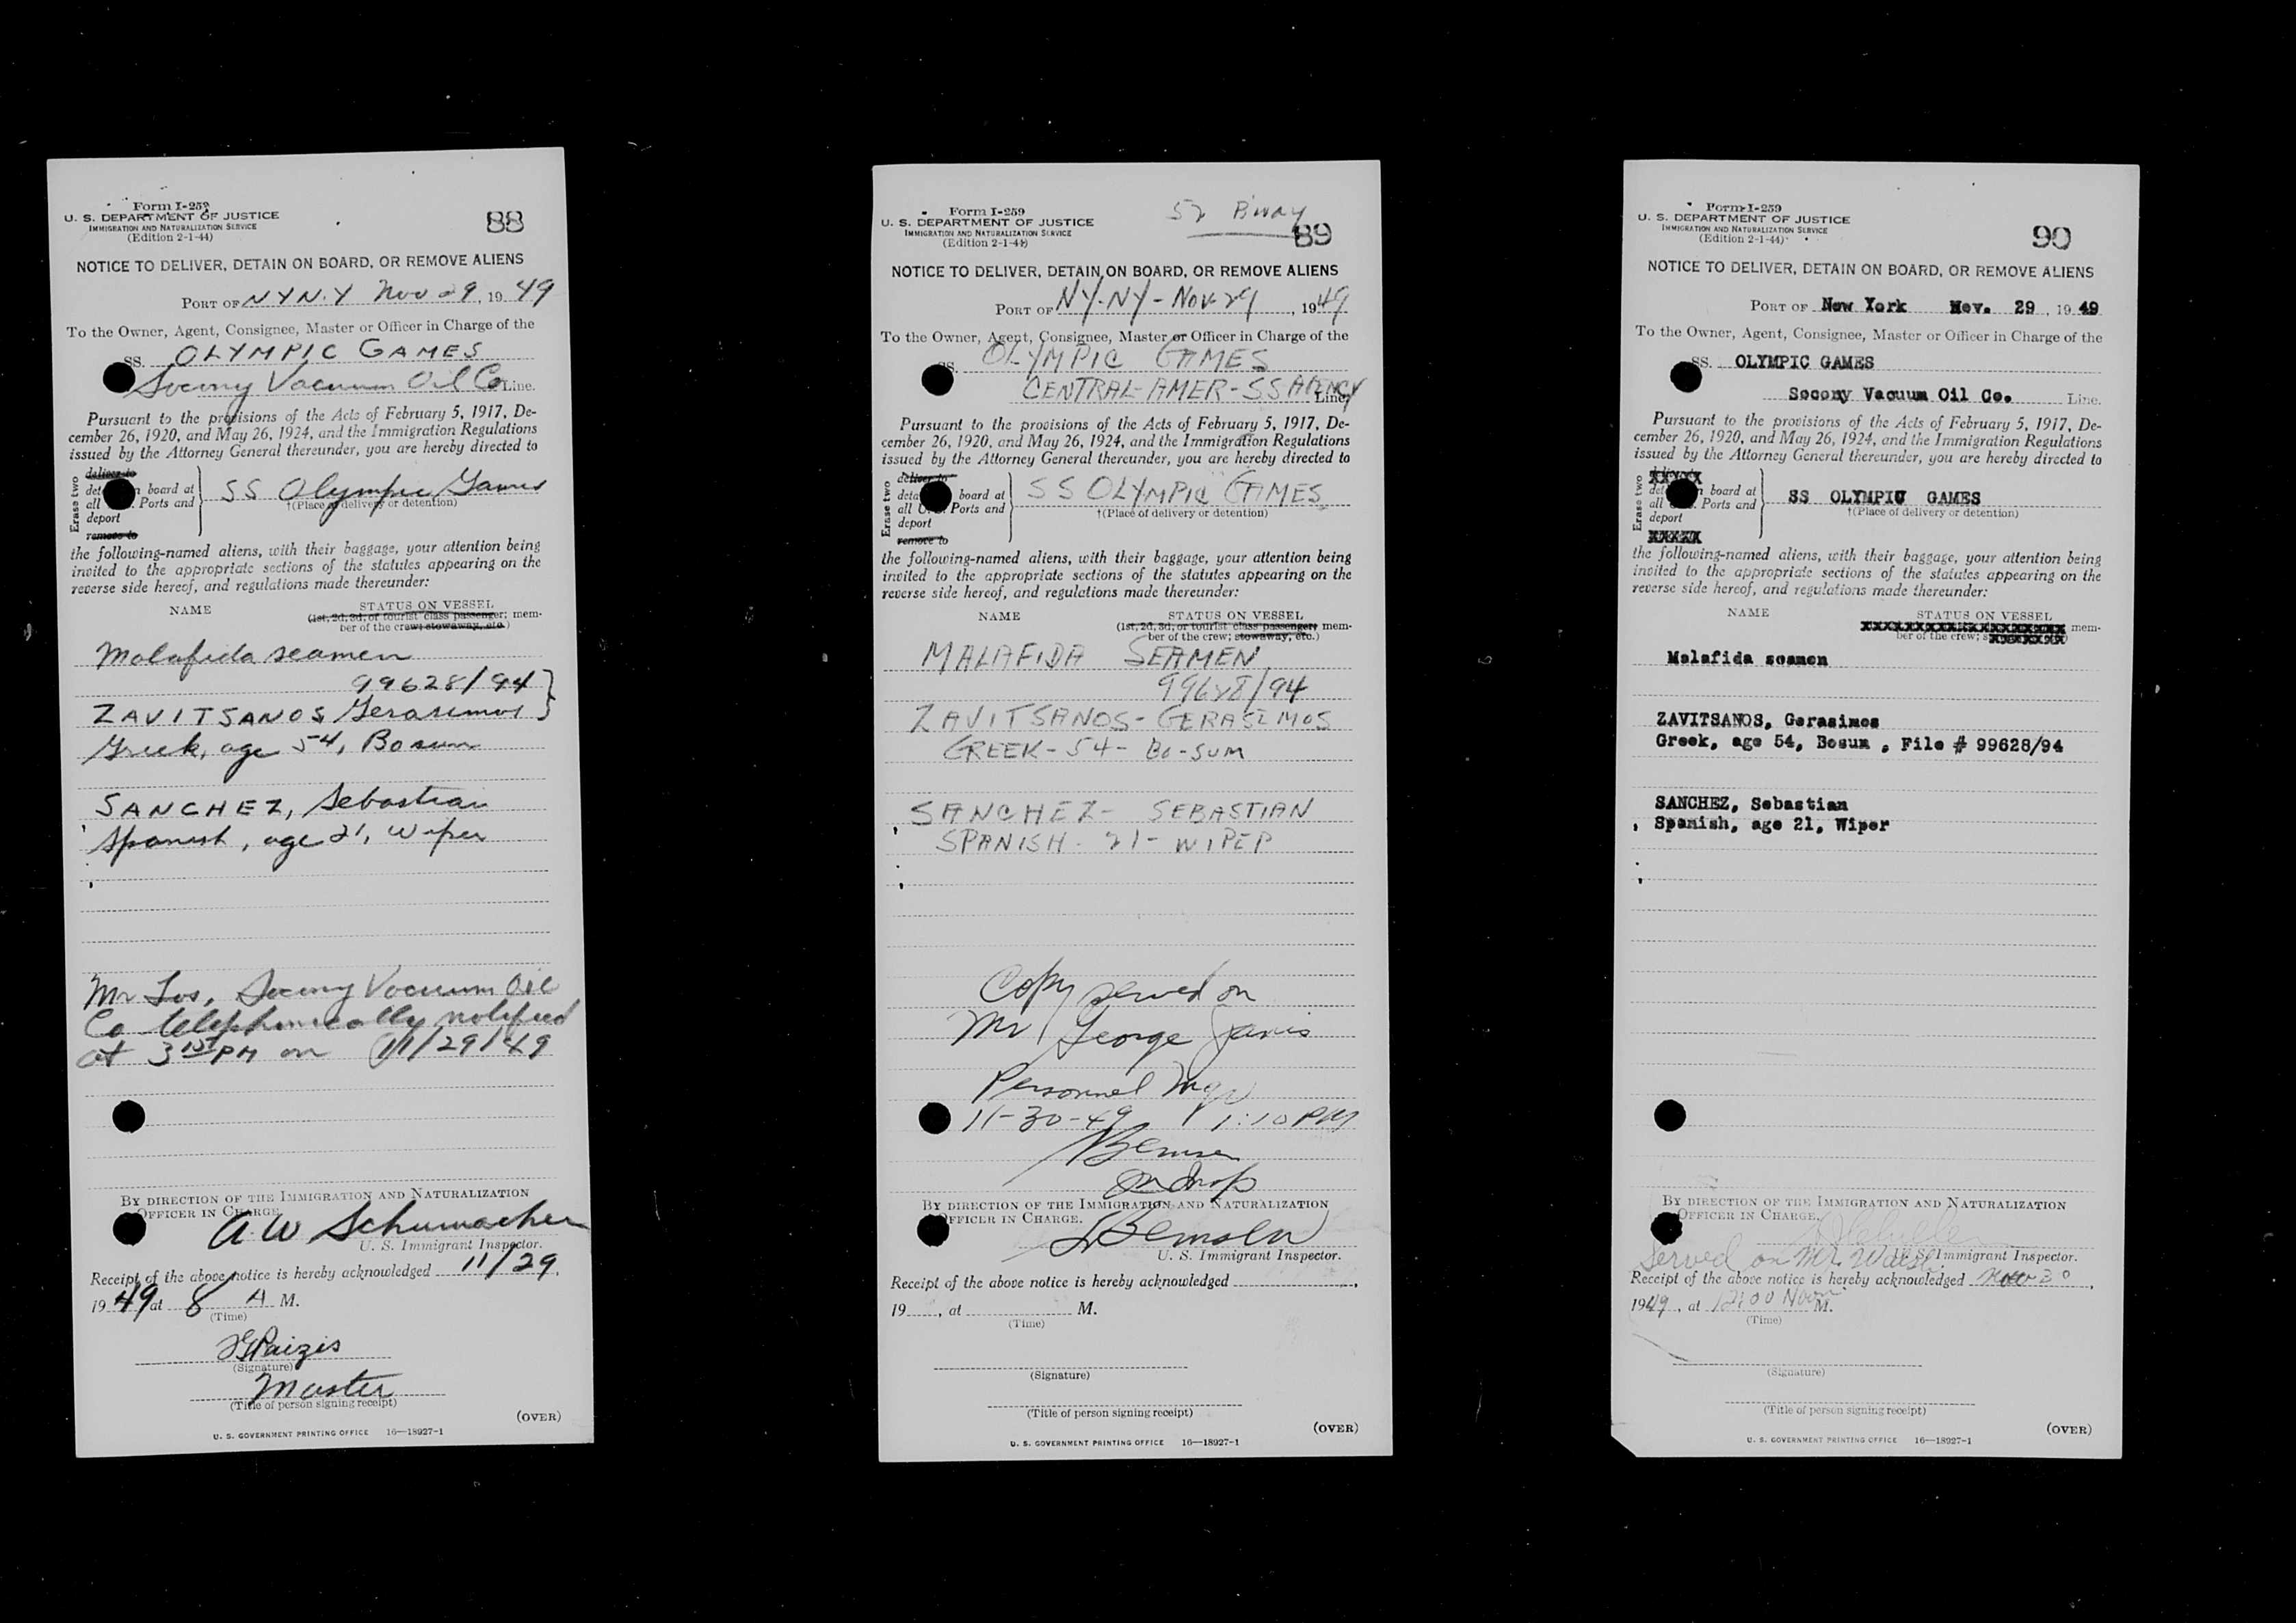 Form I-259
U. S. DEPARTMENT OF JUSTICE
IMMIGRATION AND NATURALIZATION SERVICE
(Edition 2-1-44)
88
NOTICE TO DELIVER, DETAIN ON BOARD, OR REMOVE ALIENS
PORT OF N Y N.Y Nov 29, 1949
To the Owner, Agent, Consignee, Master or Officer in Charge of the
SS. OLYMPIC GAMES
Socony Vacuum Oil Co Line.
Pursuant to the provisions of the Acts of February 5, 1917, De-
cember 26, 1920, and May 26, 1924, and the Immigration Regulations
issued by the Attorney General thereunder, you are hereby directed to
Erase two
deliver to
det n board at
all . Ports and
deport
remove to
SS Olympic Games
†(Place of delivery or detention)
the following-named aliens, with their baggage, your attention being
invited to the appropriate sections of the statutes appearing on the
reverse side hereof, and regulations made thereunder:
NAME STATUS ON VESSEL
(1st, 2d, 3d, or tourist class passenger; mem-
ber of the crew; stowaway, etc.)
Malafida seamen
99628/94
ZAVITSANOS, Gerasimos
Greek, age 54, Bosum
SANCHEZ, Sebastian
Spanish, age 21, Wiper
Mr , Socony Vacuum Oil
Co telephonically notified
at 3 15 PM on 11/29/49
BY DIRECTION OF THE IMMIGRATION AND NATURALIZATION
OFFICER IN CHARGE.
A. W Schumacher
U. S. Immigrant Inspector.
Receipt of the above notice is hereby acknowledged 11/29,
1949 at 8 A M.
(Time)
Paizis
(Signature)
Master
(Title of person signing receipt)
(OVER)
U. S. GOVERNMENT PRINTING OFFICE 16—18927-1
Form I-259
U. S. DEPARTMENT OF JUSTICE
IMMIGRATION AND NATURALIZATION SERVICE
(Edition 2-1-44)
52 B'way
89
NOTICE TO DELIVER, DETAIN ON BOARD, OR REMOVE ALIENS
PORT OF NY-NY- Nov-29, 1949
To the Owner, Agent, Consignee, Master or Officer in Charge of the
SS. OLYMPIC GAMES
CENTRAL-AMER-SS AGENCY Line.
Pursuant to the provisions of the Acts of February 5, 1917, De-
cember 26, 1920, and May 26, 1924, and the Immigration Regulations
issued by the Attorney General thereunder, you are hereby directed to
Erase two
deliver to
deta board at
all U. Ports and
deport
remove to
SS OLYMPIC GAMES
†(Place of delivery or detention)
the following-named aliens, with their baggage, your attention being
invited to the appropriate sections of the statutes appearing on the
reverse side hereof, and regulations made thereunder:
NAME STATUS ON VESSEL
(1st, 2d, 3d, or tourist class passenger; mem-
ber of the crew; stowaway, etc.)
MALAFIDA SEAMEN
99628/94
ZAVITSANOS- GERASIMOS
GREEK- 54- BO-SUM
SANCHEZ- SEBASTIAN
SPANISH- 21- WIPER
Copy served on
Mr George Janis
Personnel Mgr
11-30-49 1:10 PM
BY DIRECTION OF THE IMMIGRATION AND NATURALIZATION
OFFICER IN CHARGE.
U. S. Immigrant Inspector.
Receipt of the above notice is hereby acknowledged ,
19 , at M.
(Time)
(Signature)
(Title of person signing receipt)
(OVER)
U. S. GOVERNMENT PRINTING OFFICE 16—18927-1
Form I-259
U. S. DEPARTMENT OF JUSTICE
IMMIGRATION AND NATURALIZATION SERVICE
(Edition 2-1-44)
90
NOTICE TO DELIVER, DETAIN ON BOARD, OR REMOVE ALIENS
PORT OF New York Nov. 29, 19 49
To the Owner, Agent, Consignee, Master or Officer in Charge of the
SS. OLYMPIC GAMES
Socony Vacuum Oil Co. Line.
Pursuant to the provisions of the Acts of February 5, 1917, De-
cember 26, 1920, and May 26, 1924, and the Immigration Regulations
issued by the Attorney General thereunder, you are hereby directed to
Erase two
XXXXX
det n board at
all . Ports and
deport
XXXXX
SS OLYMPIC GAMES
†(Place of delivery or detention)
the following-named aliens, with their baggage, your attention being
invited to the appropriate sections of the statutes appearing on the
reverse side hereof, and regulations made thereunder:
NAME STATUS ON VESSEL
mem-
ber of the crew;
Malafida seamen
ZAVITSANOS, Gerasimos
Greek, age 54, Bosum , File # 99628/94
SANCHEZ, Sebastian
Spanish, age 21, Wiper
BY DIRECTION OF THE IMMIGRATION AND NATURALIZATION
OFFICER IN CHARGE.
Served on Mr. Walsh U. S. Immigrant Inspector.
Receipt of the above notice is hereby acknowledged Nov 30,
1949, at 12:00 Noon M.
(Time)
(Signature)
(Title of person signing receipt)
(OVER)
U. S. GOVERNMENT PRINTING OFFICE 16—18927-1